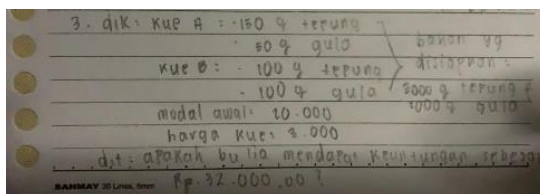 3. dik: Kue A : - 150 g tepung
- 50 g gula
bahan yg
Kue B : - 100 g tepung
disiapkan :
- 100 g gula
3000 g tepung &
2000 g gula
modal awal: 20.000
harga kue: 8.000
dit: apakah bu lia mendapat keuntungan sebesar
Rp. 32.000,00 ?
BANMAY 30 Lines, 6mm